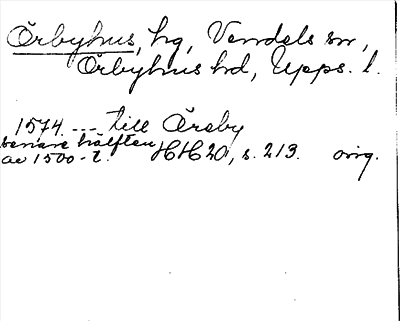 Örbyhus, hg, Vendels sn,
Örbyhus hd, Upps. l.
1574 --- till Öreby
senare hälften
av 1500-t. HH20, s. 213. orig.